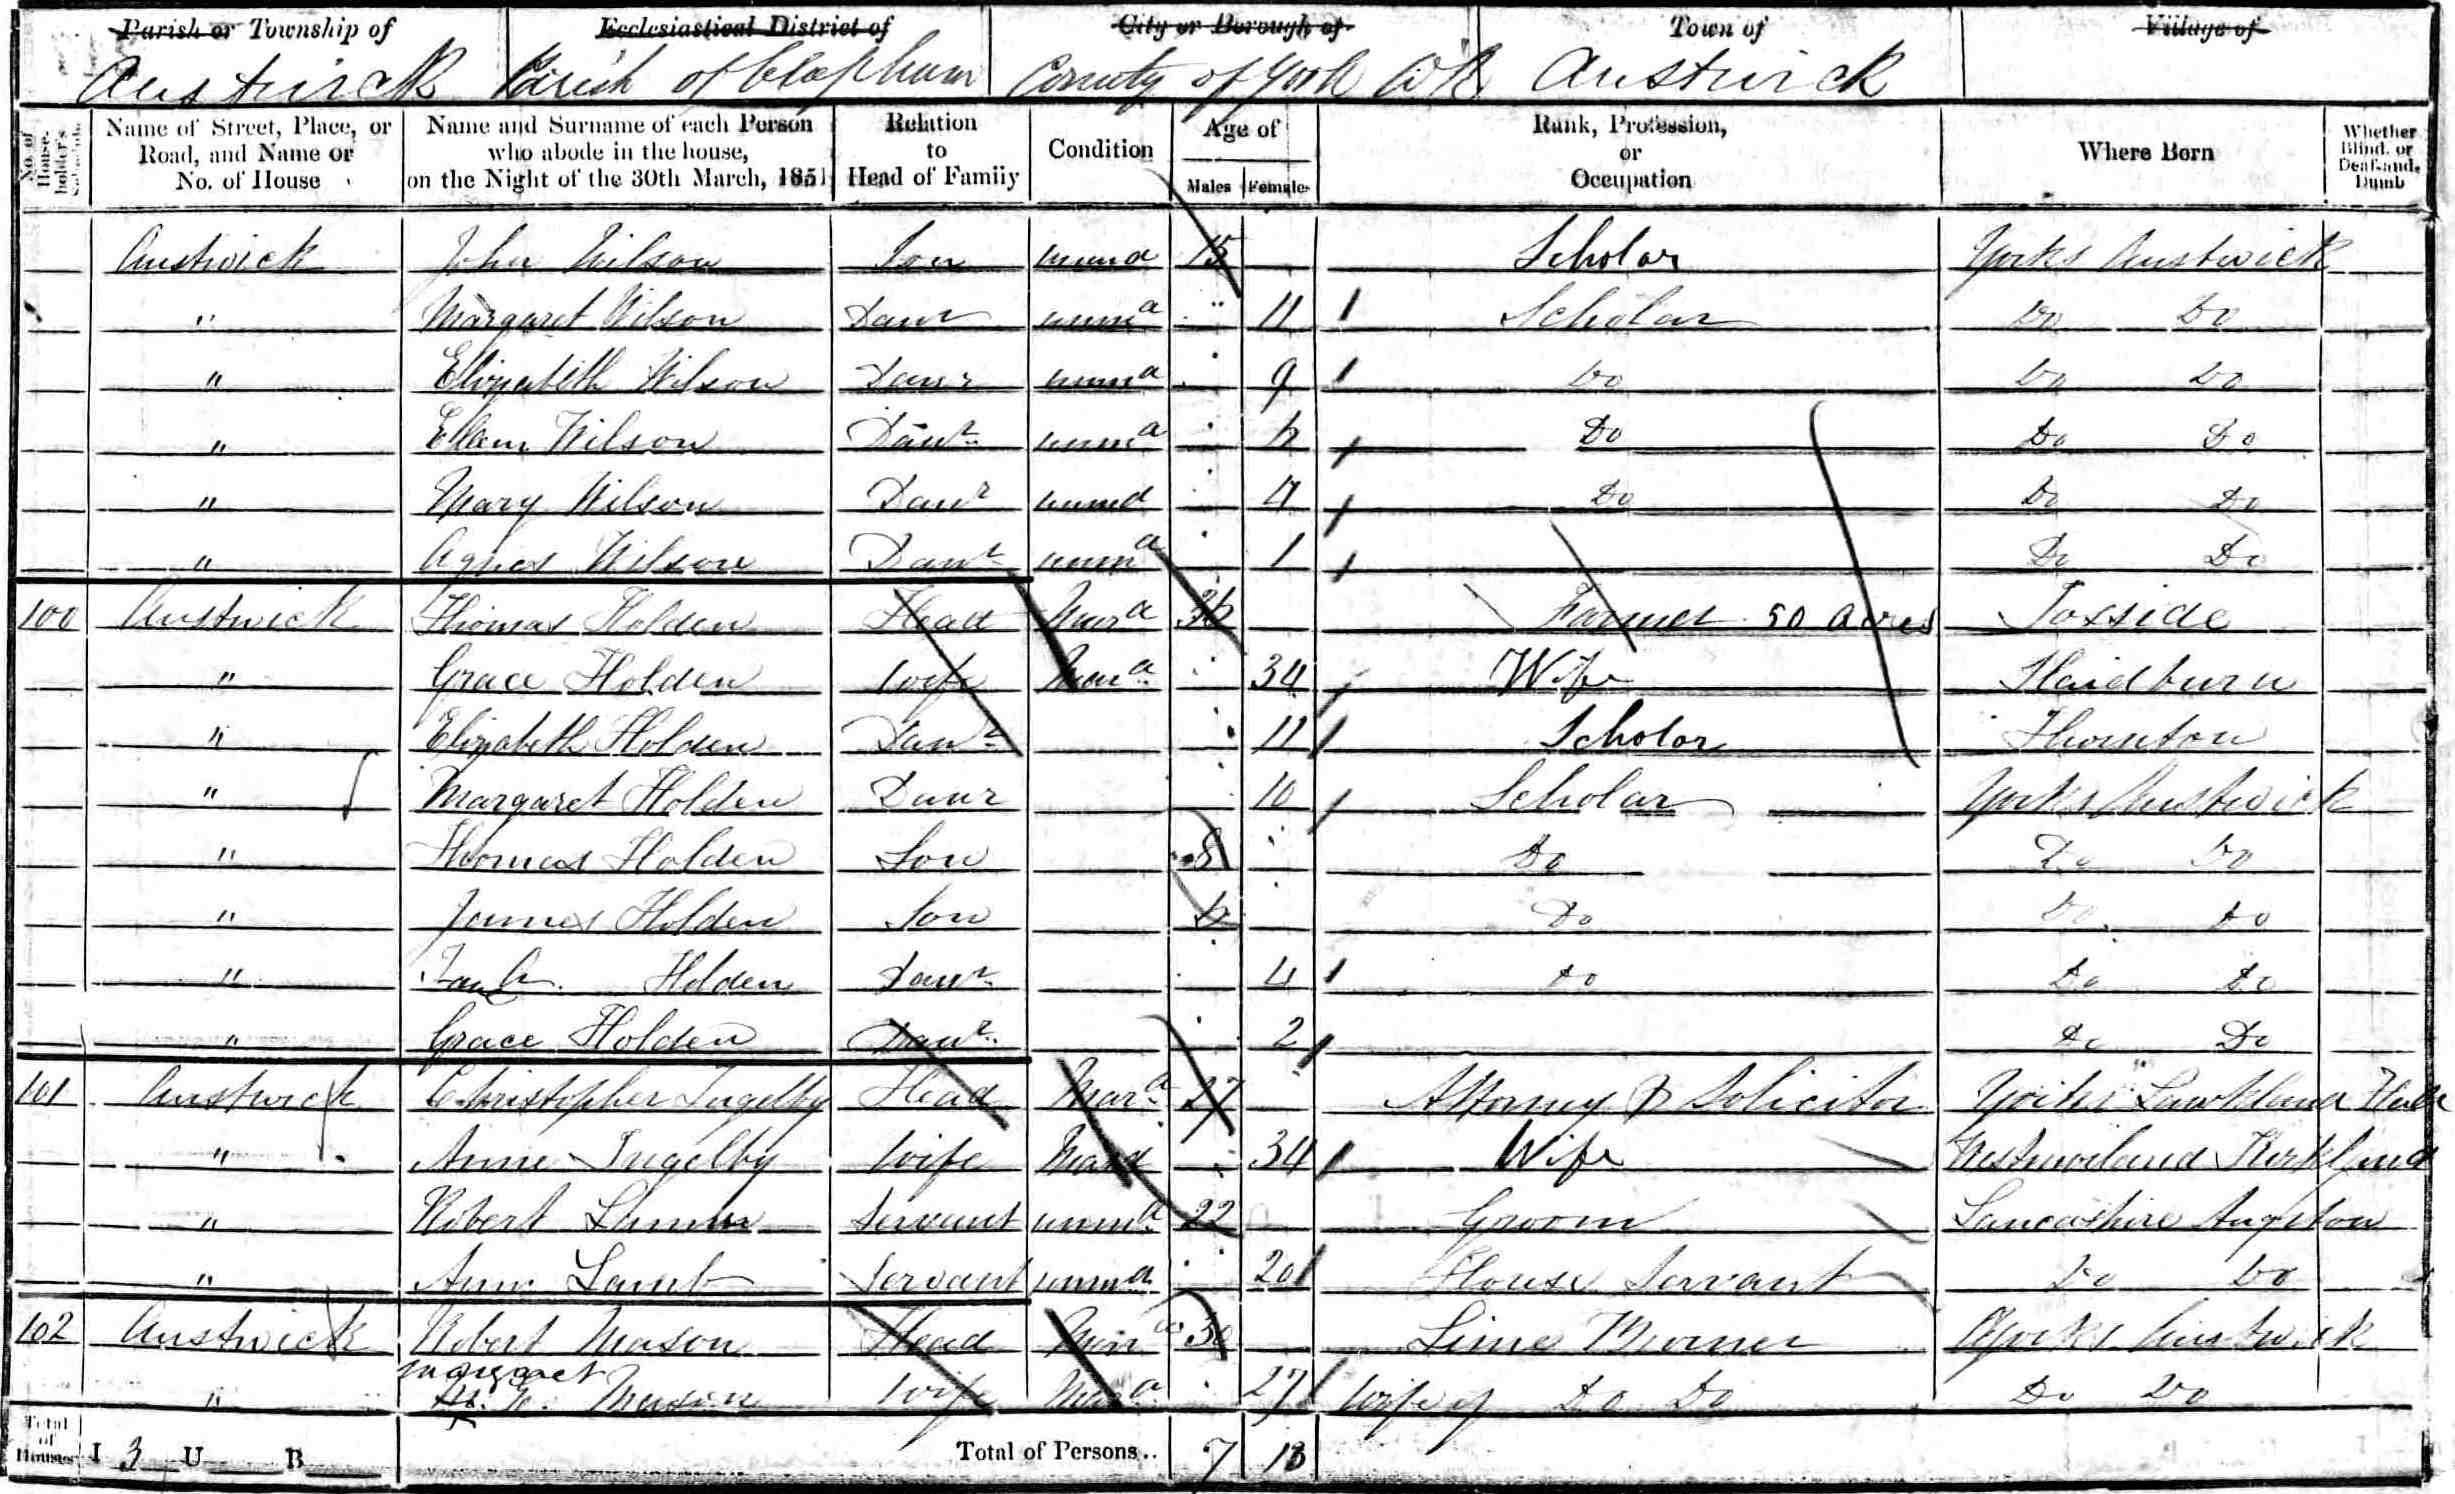 Parish or Township of Ecclesiastical District of City or Borough of Town of Village of
Austwick Parish of Clapham County of York W R Austwick
No. of House-holder's Schedule Name of Street, Place, or Road, and Name or No. of House Name and Surname of each Person who abode in the house, on the Night of the 30th March, 1851 Relation to Head of Family Condition Age of Males Females Rank, Profession, or Occupation Where Born Whether Blind, or Deaf-and-Dumb
Austwick John Wilson Son unmd 15 Scholar Yorks Austwick
" Margaret Wilson Daur unmd 11 Scholar Do Do
" Elizabeth Wilson Daur unmd 9 Do Do Do
" Ellen Wilson Daur unmd 6 Do Do Do
" Mary Wilson Daur unmd 4 Do Do Do
" Agnes Wilson Daur unmd 1 Do Do
100 Austwick Thomas Holden Head Mard 36 Farmer 50 Acres Tosside
" Grace Holden Wife Mard 34 Wife Slaidburn
" Elizabeth Holden Daur 11 Scholar Thornton
" Margaret Holden Daur 10 Scholar Yorks Austwick
" Thomas Holden Son 8 Do Do Do
" James Holden Son 6 Do Do Do
" Holden Daur 4 Do Do Do
" Grace Holden Daur 2 Do Do
101 Austwick Christopher Ingelby Head Mard 27 Attorney & Solicitor Yorks Lawkland Hall
" Anne Ingelby Wife Mard 34 Wife Westmorland Kirkby
" Robert Servant unmd 22 Groom Lancashire
" Ann Lamb Servant unmd 20 House Servant Do Do
102 Austwick Robert Mason Head Mard 30 Lime Burner Yorks Austwick
" Margaret Mason Wife Mard 27 Wife of Do Do Do Do
Total of Houses I 3 U B Total of Persons.. 7 18